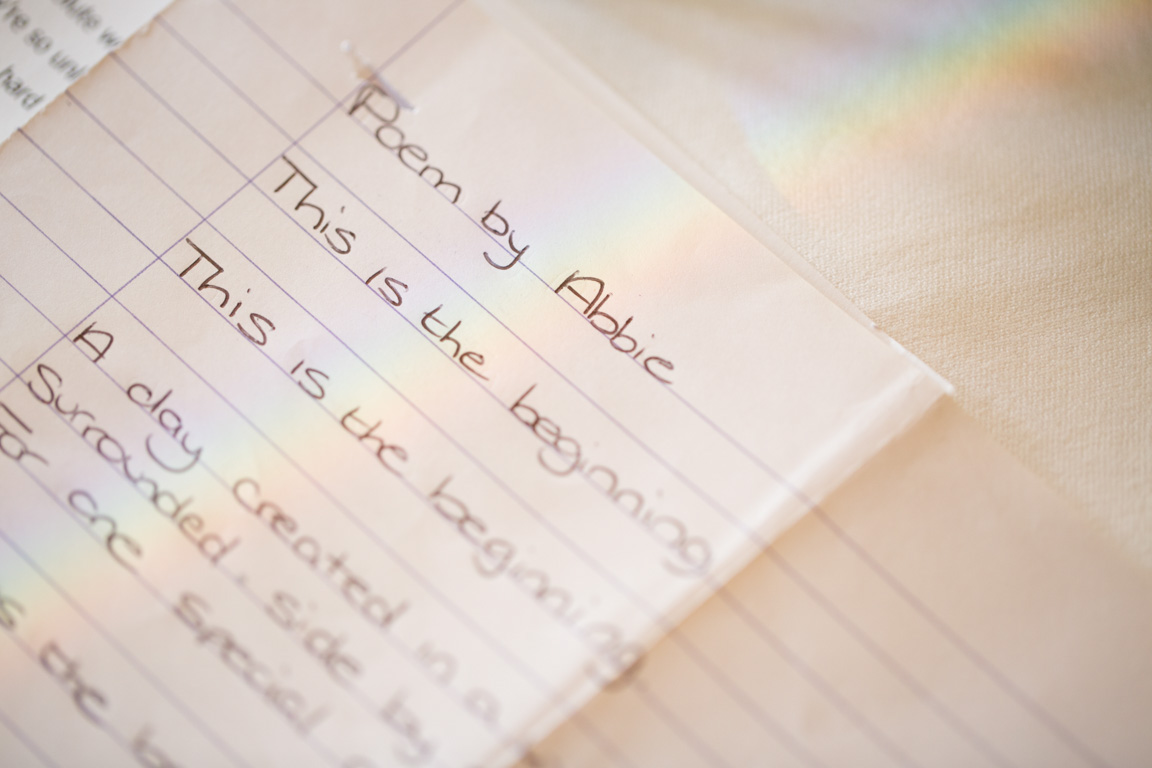 so
hard
Poem by Abbie
This is the beginning
This is the beginning
A day created in a
Surrounded, side by
For one special
the